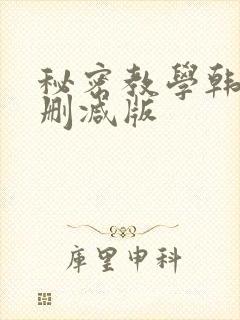 秘密教學韩
删减版
库里申科